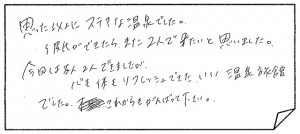 思った以上にステキな温泉でした。
彼氏ができたらまた2人で来たいと思いました。
今回は友人2人できましたが、
心も体もリフレッシュできた、いい温泉旅館
でした。これからもがんばって下さい。